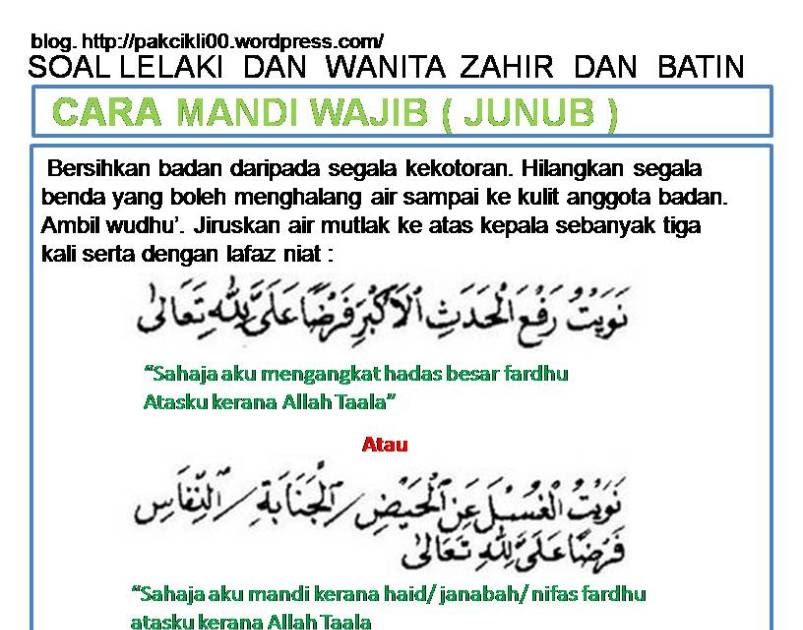 blog. http://pakcikli00.wordpress.com/
SOAL LELAKI DAN WANITA ZAHIR DAN BATIN
CARA MANDI WAJIB ( JUNUB )
Bersihkan badan daripada segala kekotoran. Hilangkan segala
benda yang boleh menghalang air sampai ke kulit anggota badan.
Ambil wudhu’. Jiruskan air mutlak ke atas kepala sebanyak tiga
kali serta dengan lafaz niat :
نَوَيْتُ رَفْعَ الْحَدَثِ الْاَكْبَرِ فَرْضًا عَلَيَّ لِلّٰهِ تَعَالٰى
“Sahaja aku mengangkat hadas besar fardhu
Atasku kerana Allah Taala”
Atau
نَوَيْتُ الْغُسْلَ عَنِ الْحَيْضِ / الْجَنَابَةِ / النِّفَاسِ
فَرْضًا عَلَيَّ لِلّٰهِ تَعَالٰى
“Sahaja aku mandi kerana haid/ janabah/ nifas fardhu
atasku kerana Allah Taala